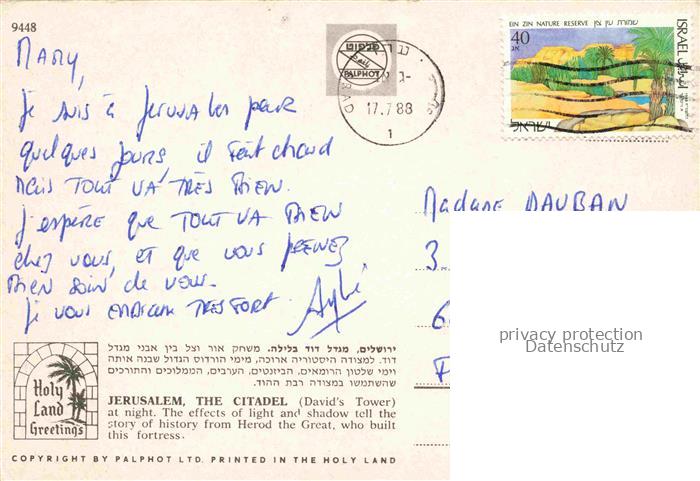 9448
Mamy,
je suis à Jerusalem pour
quelques jours, il fait chaud
mais TOUT VA TRÈS BIEN.
j'espère que TOUT VA BIEN
chez vous, et que vous prenez
bien soin de vous.
je vous embrasse TRES FORT.
PALPHOT
17.7.88
1
EIN ZIN NATURE RESERVE שמורת עין צין
40
ISRAEL
ישראל
Madame DAUBAN
3
6
F
privacy protection
Datenschutz
ירושלים, מגדל דוד בלילה. משחק אור וצל בין אבני מגדל
דוד. למצודה היסטוריה ארוכה, מימי הורדוס הגדול שבנה אותה
וימי שלטון הרומאים, הביזנטים, הערבים, הממלוכים והתורכים
שהשתמשו במצודה רבת ההוד.
Holy
Land
Greetings
JERUSALEM, THE CITADEL (David's Tower)
at night. The effects of light and shadow tell the
story of history from Herod the Great, who built
this fortress.
COPYRIGHT BY PALPHOT LTD. PRINTED IN THE HOLY LAND